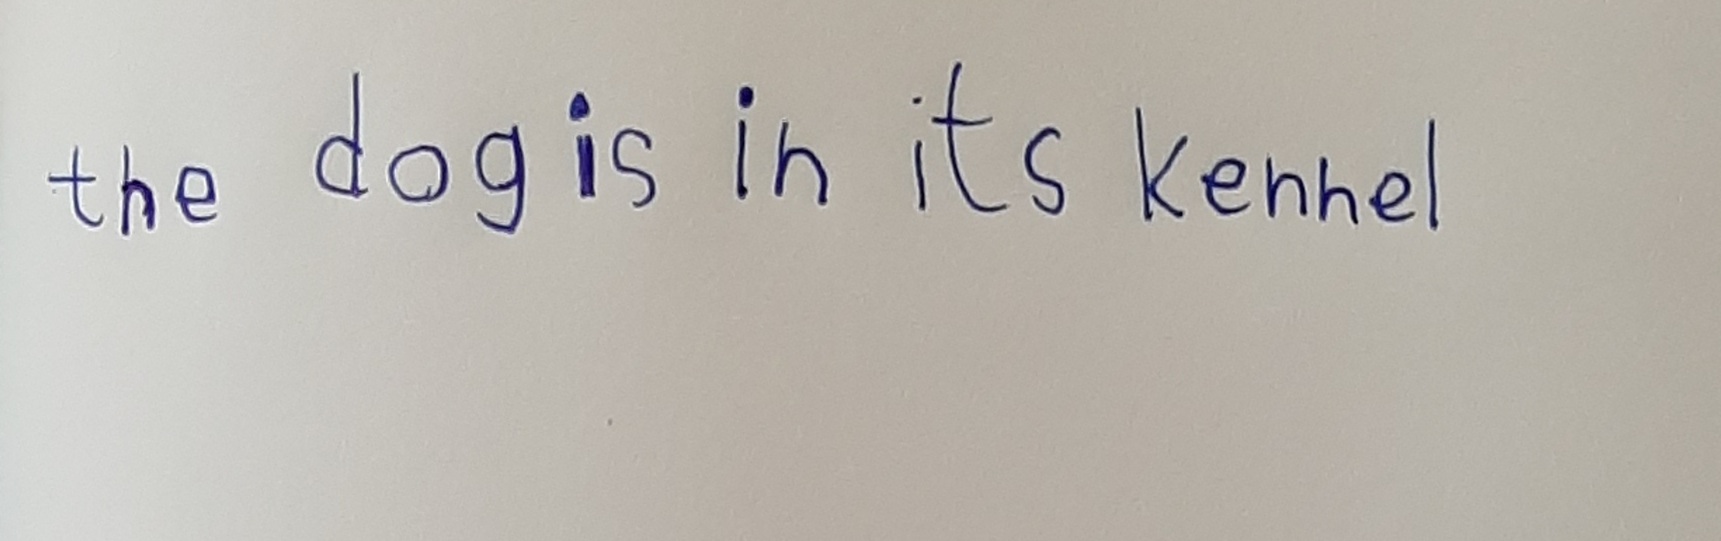 the dog is in its kennel